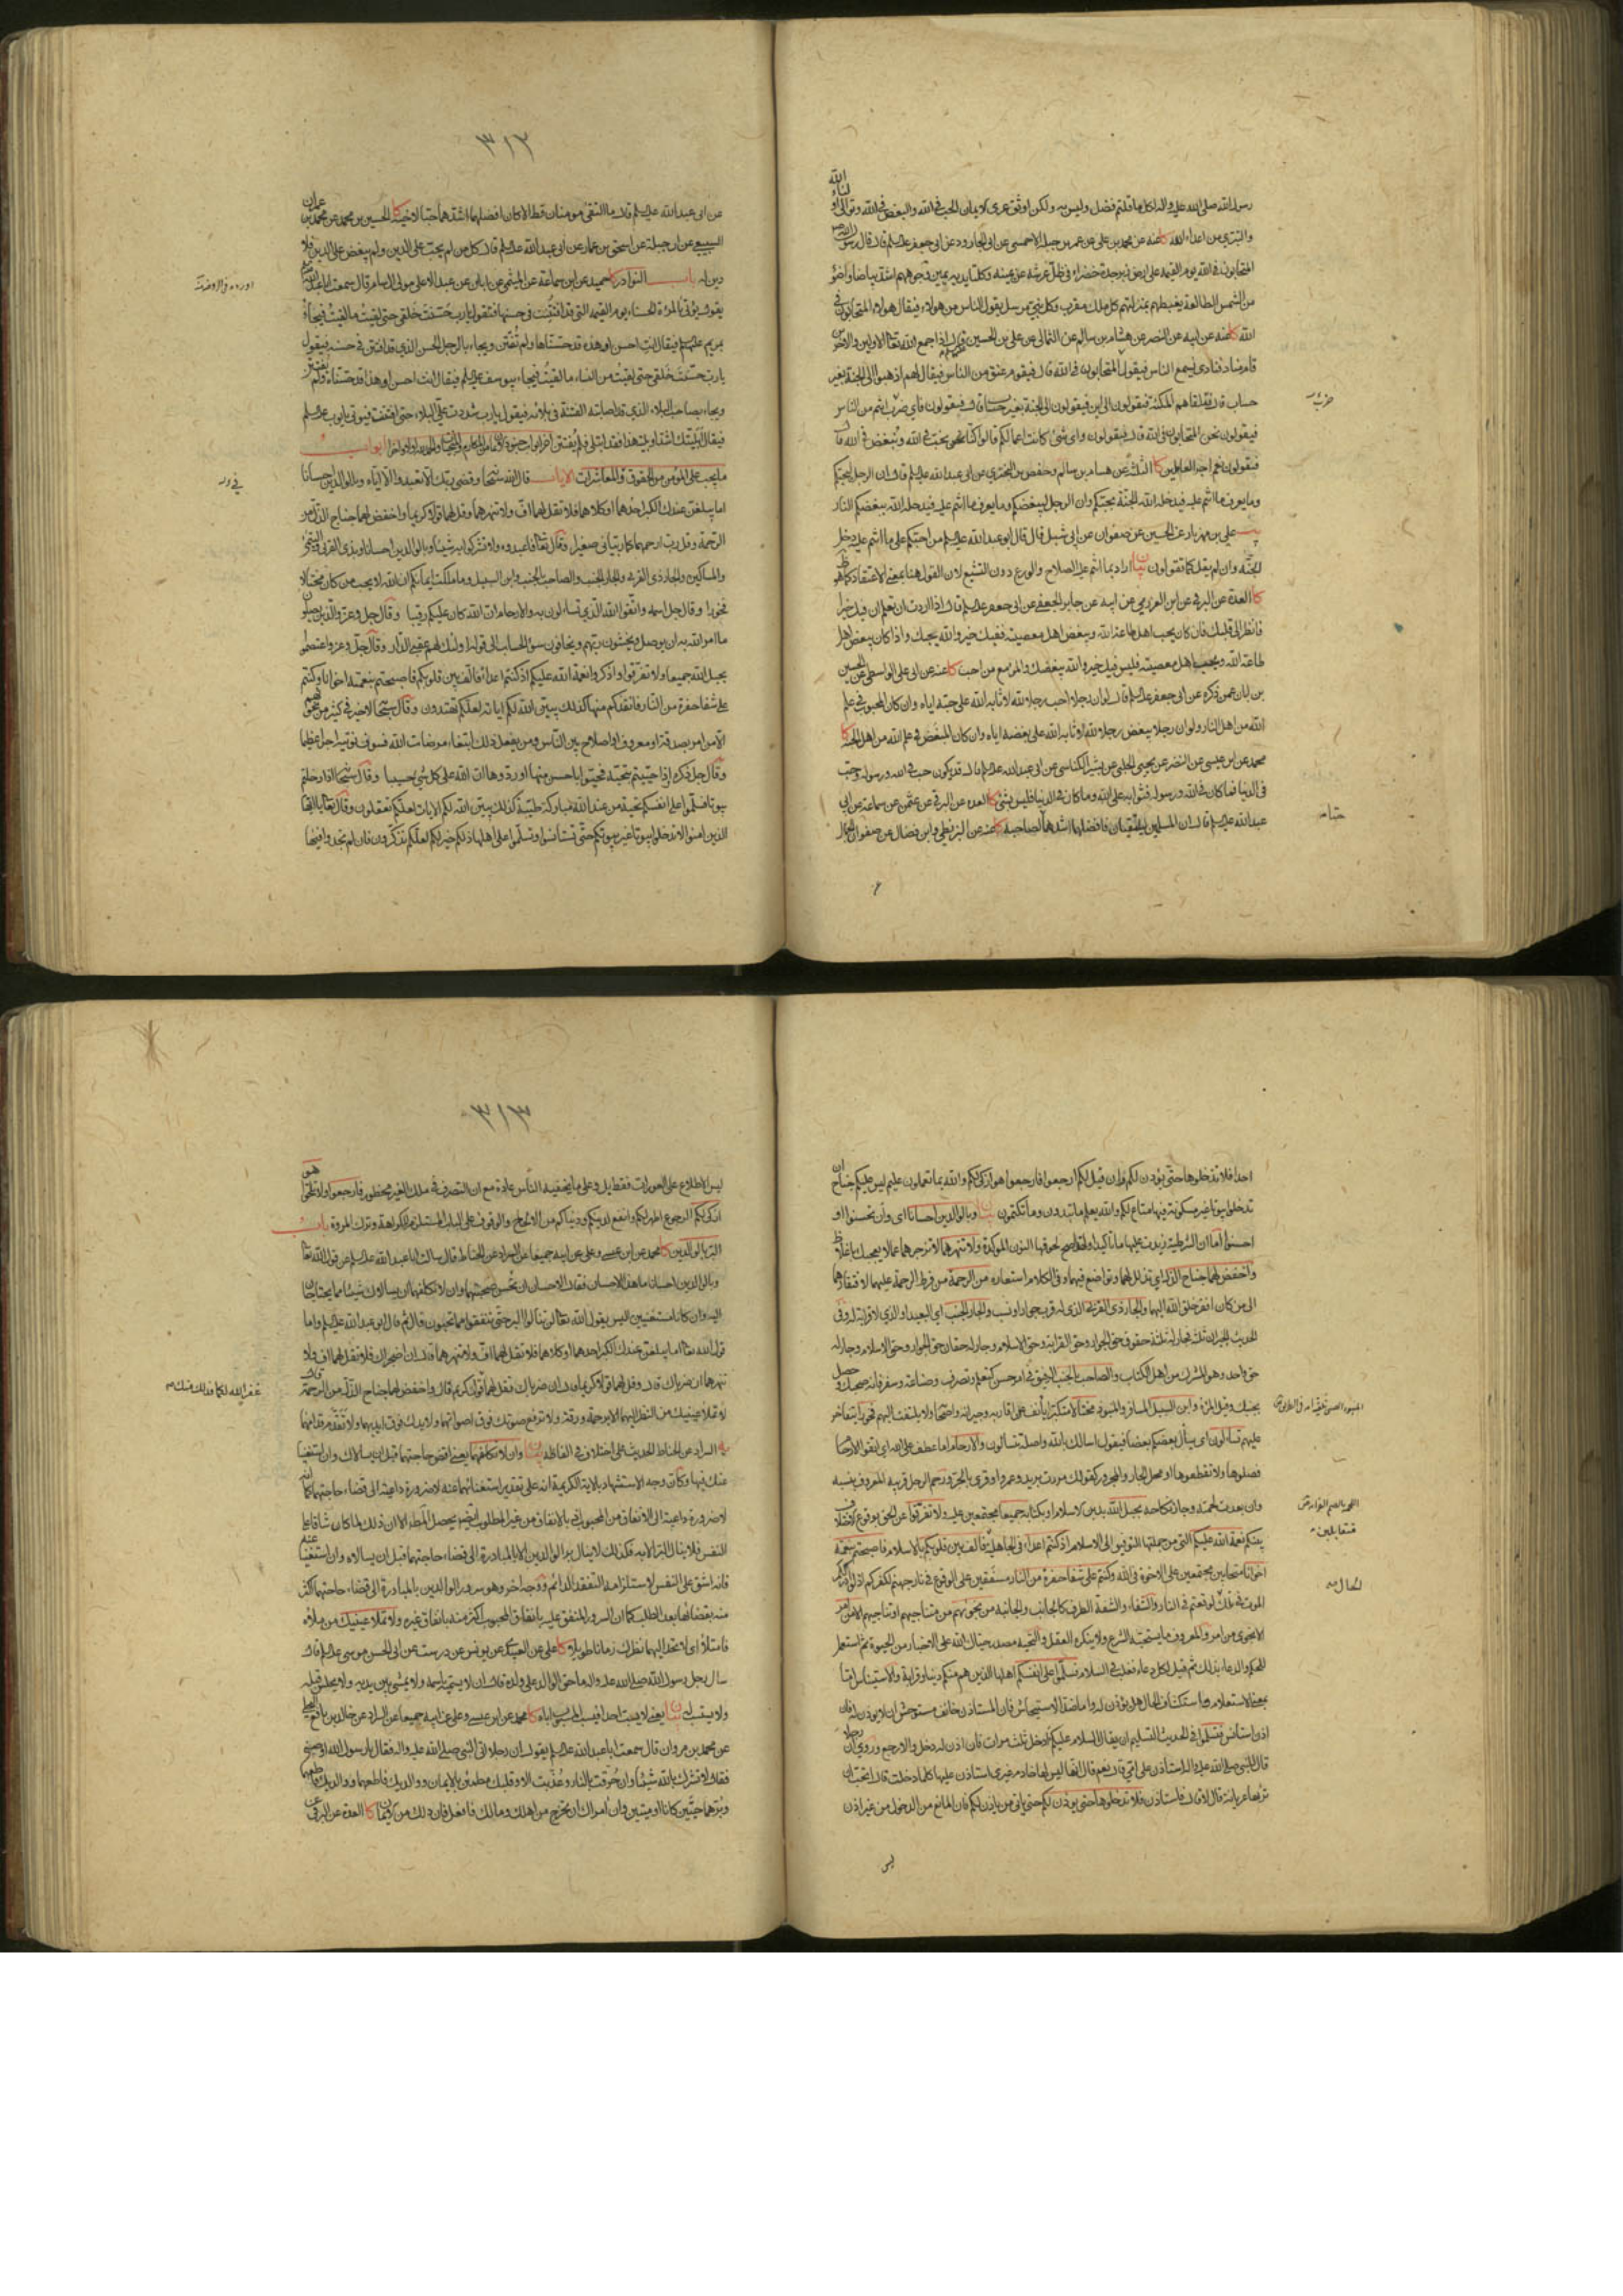 رسول الله صلى الله عليه واله لكل ما قلتم فضل وليس به ولكن اوثق عرى الايمان الحب في الله والبغض في الله وتوالى اولياء الله
والتبري من اعداء الله كا عنه عن محمد بن علي عن عمر بن جبلة الاحمسي عن ابي الجارود عن ابي جعفر عليه السلم قال قال رسول الله ص
المتحابون في الله يوم القيمة على ارض زبرجدة خضراء في ظل عرشه عن يمينه وكلتا يديه يمين وجوههم اشد بياضا واضوء
من الشمس الطالعة يغبطهم بمنزلتهم كل ملك مقرب وكل نبي مرسل يقول الناس من هؤلاء فيقال هؤلاء المتحابون في
الله كا عنه عن ابيه عن النضر عن هشام بن سالم عن الثمالي عن علي بن الحسين قال اذا جمع الله تعالى الاولين والاخرين
قام مناد فنادى يسمع الناس فيقول اين المتحابون في الله قال فيقوم عنق من الناس فيقال لهم اذهبوا الى الجنة بغير
حساب قال فتلقاهم الملئكة فيقولون الى اين فيقولون الى الجنة بغير حساب قال فيقولون فاي ضرب انتم من الناس
فيقولون نحن المتحابون في الله قال فيقولون واي شئ كانت اعمالكم قالوا كنا نحب في الله ونبغض في الله قال
فيقولون نعم اجر العاملين كا الثلثة عن هشام بن سالم وحفص بن البختري عن ابي عبد الله عليه السلم قال ان الرجل ليحبكم
وما يعرف ما انتم عليه فيدخله الله الجنة بحبكم وان الرجل ليبغضكم وما يعرف ما انتم عليه فيدخله الله ببغضكم النار
يب علي بن مهزيار عن الحسين عن صفوان عن ابي شبل قال قال ابو عبد الله عليه السلم من احبكم على ما انتم عليه دخل
الجنة وان لم يقل كما تقولون بيان اراد بما انتم عليه الصلاح والورع دون التشيع لان القول هنا بمعنى الاعتقاد كما هو ظ
كا العدة عن البرقي عن ابن العرزمي عن ابيه عن جابر الجعفي عن ابي جعفر عليه السلم قال اذا اردت ان تعلم ان فيك خيرا
فانظر الى قلبك فان كان يحب اهل طاعة الله ويبغض اهل معصيته ففيك خير والله يحبك واذا كان يبغض اهل
طاعة الله ويحب اهل معصيته فليس فيك خير والله يبغضك والمرء مع من احب كا عنه عن ابي علي الواسطي عن الحسين
بن ابان عمن ذكره عن ابي جعفر عليه السلم قال لو ان رجلا احب رجلا لله لاثابه الله على حبه اياه وان كان المحبوب في علم
الله من اهل النار ولو ان رجلا يبغض رجلا لله لاثابه الله على بغضه اياه وان كان المبغض في علم الله من اهل الجنة كا
محمد عن ابن عيسى عن النضر عن يحيى الحلبي عن بشير الكناسي عن ابي عبد الله عليه السلم قال قد يكون حب في الله ورسوله وحب
في الدنيا فما كان في الله ورسوله فثوابه على الله وما كان في الدنيا فليس بشئ كا العدة عن البرقي عن عثمن عن سماعة عن ابي
عبد الله عليه السلم قال ان المسلمين يلتقيان فافضلهما اشدهما حبا لصاحبه كا عنه عن البزنطي وابن فضال عن صفوان الجمال
٣١٢
عن ابي عبد الله عليه السلم قال ما التقى مومنان قط الا كان افضلهما اشدهما حبا لاخيه كا الحسين بن محمد عن محمد بن عمران
السبيعي عن ابن جبلة عن اسحق بن عمار عن ابي عبد الله عليه السلم قال كل من لم يحب على الدين ولم يبغض على الدين فلا
دين له باب النوادر كا حميد عن ابن سماعة عن الميثمي عن ابان عن عبد الاعلى مولى ال سام قال سمعت ابا عبد الله
يقول يؤتى بالمراة الحسناء يوم القيمة التي قد افتتنت في حسنها فتقول يا رب حسنت خلقي حتى لقيت ما لقيت فيجاء
بمريم عليها السلم فيقال انت احسن او هذه قد حسناها ولم تفتتن ويجاء بالرجل الحسن الذي قد افتتن في حسنه فيقول
يا رب حسنت خلقي حتى لقيت من النساء ما لقيت فيجاء بيوسف عليه السلم فيقال انت احسن او هذا قد حسناه ولم يفتتن
ويجاء بصاحب البلاء الذي قد اصابته الفتنة في بلائه فيقول يا رب شددت علي البلاء حتى افتتنت فيؤتى بايوب عليه السلم
فيقال ابليتك اشد او بلية هذا فقد ابتلي فلم يفتتن ابواب
ما يجب على المؤمن من الحقوق في المعاشرات الايات قال الله سبحانه وقضى ربك الا تعبدوا الا اياه وبالوالدين احسانا
اما يبلغن عندك الكبر احدهما او كلاهما فلا تقل لهما اف ولا تنهرهما وقل لهما قولا كريما واخفض لهما جناح الذل من
الرحمة وقل رب ارحمهما كما ربياني صغيرا وقال تعالى واعبدوه ولا تشركوا به شيئا وبالوالدين احسانا وبذي القربى واليتامى
والمساكين والجار ذي القربى والجار الجنب والصاحب بالجنب وابن السبيل وما ملكت ايمانكم ان الله لا يحب من كان مختالا
فخورا وقال جل اسمه واتقوا الله الذي تساءلون به والارحام ان الله كان عليكم رقيبا وقال جل وعز والذين يصلون
ما امر الله به ان يوصل ويخشون ربهم ويخافون سوء الحساب الى قوله اولئك لهم عقبى الدار وقال جل وعز واعتصموا
بحبل الله جميعا ولا تفرقوا واذكروا نعمة الله عليكم اذ كنتم اعداء فالف بين قلوبكم فاصبحتم بنعمته اخوانا وكنتم
على شفا حفرة من النار فانقذكم منها كذلك يبين الله لكم اياته لعلكم تهتدون وقال سبحانه لا خير في كثير من نجواهم
الا من امر بصدقة او معروف او اصلاح بين الناس ومن يفعل ذلك ابتغاء مرضات الله فسوف نؤتيه اجرا عظيما
وقال جل ذكره اذا حييتم بتحية فحيوا باحسن منها او ردوها ان الله على كل شئ حسيبا وقال سبحانه اذا دخلتم
بيوتا فسلموا على انفسكم تحية من عند الله مباركة طيبة كذلك يبين الله لكم الايات لعلكم تعقلون وقال تعالى يا ايها
الذين امنوا لا تدخلوا بيوتا غير بيوتكم حتى تستانسوا وتسلموا على اهلها ذلكم خير لكم لعلكم تذكرون فان لم تجدوا فيها
اورده في الروضة
احدا فلا تدخلوها حتى يؤذن لكم وان قيل لكم ارجعوا فارجعوا هو ازكى لكم والله بما تعملون عليم ليس عليكم جناح ان
تدخلوا بيوتا غير مسكونة فيها متاع لكم والله يعلم ما تبدون وما تكتمون بيان وبالوالدين احسانا اي وان تحسنوا او
احسنوا اما ان الشرطية زيدت عليها ما تاكيدا ولذا صح لحوقها النون المؤكدة ولا تنهرهما لا تزجرهما عما لا يعجبك باغلاظ
واخفض لهما جناح الذل اي تذلل لهما وتواضع فيهما وفي الكلام استعارة من الرحمة من فرط الرحمة عليهما لافتقارهما
الى من كان افقر خلق الله اليهما والجار ذي القربى الذي له قرب جوار او نسب والجار الجنب اي البعيد او الذي لا قرابة له وفي
الحديث الجيران ثلثة فجار له ثلثة حقوق حق الجوار وحق القرابة وحق الاسلام وجار له حقان حق الجوار وحق الاسلام وجار له
حق واحد وهو المشرك من اهل الكتاب والصاحب بالجنب الرفيق في امر حسن كتعلم وتصرف وصناعة وسفر فانه صحبك وحصل
بجنبك وقيل المراة وابن السبيل المسافر والمنبوذ مختالا متكبرا يانف عن اقاربه وجيرانه واصحابه ولا يلتفت اليهم فخورا يتفاخر
عليهم تساءلون اي يسأل بعضكم بعضا فيقول اسالك بالله واصله تتسالون والارحام اما عطف على الله اي اتقوا الارحام
فصلوها ولا تقطعوها او محل الجار والمجرور كقولك مررت بزيد وعمروا وقرئ بالجر ورحم الرجل قريبه المعروف بنسبه
وان بعدت لحمته وجاز نكاحه بحبل الله بدين الاسلام او بكتابه جميعا مجتمعين عليه ولا تفرقوا عن الحق بوقوع الاختلاف
بينكم نعمة الله عليكم التي من جملتها التوفيق الى الاسلام اذ كنتم اعداء في الجاهلية فالف بين قلوبكم بالاسلام فاصبحتم بنعمته
اخوانا متحابين مجتمعين على الاخوة في الله وكنتم على شفا حفرة من النار مشفين على الوقوع في نار جهنم لكفركم اذ لو ادرككم
الموت في تلك لوقعتم في النار والشفاء والشفة الطرف كالجانب والجانبة من نجواهم من متناجيهم او تناجيهم الا من امر
الا نجوى من امر والمعروف ما يستحبه الشرع ولا ينكره العقل والتحية مصدر حياك الله على الاخبار من الحيوة ثم استعمل
للحكم والدعاء بذلك ثم قيل لكل دعاء فغلب في السلام فسلموا على انفسكم اهلها الذين هم منكم دينا وقرابة والاستيناس اما
بمعنى الاستعلام واستكشاف الحال هل يؤذن له واما ضد الاستيحاش فان المستاذن خائف مستوحش ان لا يؤذن له فان
اذن استانس وتسلموا في الحديث التسليم ان يقال السلام عليكم أادخل ثلث مرات فان اذن له دخل والا رجع وروي ان رجلا
قال للنبي صلى الله عليه واله استاذن على امي قال نعم قال انها ليس لها خادم غيري استاذن عليها كلما دخلت قال اتحب ان
تراها عريانة قال لا قال فاستاذن فلا تدخلوها حتى يؤذن لكم حتى ياتي من ياذن لكم فان المانع من الدخول من غير اذن
ليس
٣١٣
ليس الاطلاع على العورات فقط بل وعلى ما يخفيه الناس عادة مع ان التصرف في ملك الغير محظور فارجعوا ولا تلحوا هو
ازكى لكم الرجوع اطهر لكم وانفع لدينكم ودنياكم من الالحاح والوقوف على الباب المستلزم للكراهة وترك المروة باب
البر بالوالدين كا محمد عن ابن عيسى وعلي عن ابيه جميعا عن السراد عن الحناط قال سالت ابا عبد الله عليه السلم عن قول الله تعالى
وبالوالدين احسانا ما هذا الاحسان فقال الاحسان ان تحسن صحبتهما وان لا تكلفهما ان يسالاك شيئا مما يحتاجان
اليه وان كانا مستغنيين اليس يقول الله تعالى لن تنالوا البر حتى تنفقوا مما تحبون قال ثم قال ابو عبد الله عليه السلم واما
قول الله تعالى اما يبلغن عندك الكبر احدهما او كلاهما فلا تقل لهما اف ولا تنهرهما قال ان اضجراك فلا تقل لهما اف ولا
تنهرهما ان ضرباك قال وقل لهما قولا كريما قال ان ضرباك فقل لهما قول كريم قال واخفض لهما جناح الذل من الرحمة قال
لا تملا عينيك من النظر اليهما الا برحمة ورقة ولا ترفع صوتك فوق اصواتهما ولا يدك فوق ايديهما ولا تقدم قدامهما
يه السراد عن الحناط الحديث على اختلاف في الفاظه بيان وان لا تكلفهما يعني اقض حاجتهما قبل ان يسالاك وان استغنيا
عنك فيها وكان وجه الاستشهاد بالاية الكريمة انه على تقدير استغنائهما عنه لا ضرورة داعية الى قضاء حاجتهما كما انه
لا ضرورة داعية الى الانفاق من المحبوب اذ بالانفاق من غير المطلوب ايضا يحصل المطلوب الا ان ذلك لما كان شاقا على
النفس فلا ينال البر الا به فكذلك لا ينال بر الوالدين الا بالمبادرة الى قضاء حاجتهما قبل ان يسالاه وان استغنيا عنه
فانه اشق على النفس لاستلزامه التفقد الدائم ووجه اخر وهو سرور الوالدين بالمبادرة الى قضاء حاجتهما اكثر
منه بقضائها بعد الطلب كما ان سرور المنفق عليه بانفاق المحبوب اكثر منه بانفاق غيره ولا تملا عينيك من ملاه
فامتلا اي لا تحد اليهما نظرك زمانا طويلا كا علي عن العبيدي عن يونس عن درست عن ابي الحسن موسى عليه السلم قال
سال رجل رسول الله صلى الله عليه واله ما حق الوالد على ولده قال ان لا يسميه باسمه ولا يمشي بين يديه ولا يجلس قبله
ولا يستسب له بيان يعني لا يسب احدا فيسب المسبوب اباه كا محمد عن ابن عيسى وعلي عن ابيه جميعا عن السراد عن خالد بن نافع البجلي
عن محمد بن مروان قال سمعت ابا عبد الله عليه السلم يقول ان رجلا اتى النبي صلى الله عليه واله فقال يا رسول الله اوصني
فقال لا تشرك بالله شيئا وان حرقت بالنار وعذبت الا وقلبك مطمئن بالايمان ووالديك فاطعهما
وبرهما حيين كانا او ميتين وان امراك ان تخرج من اهلك ومالك فافعل فان ذلك من الايمان كا العدة عن البرقي عن